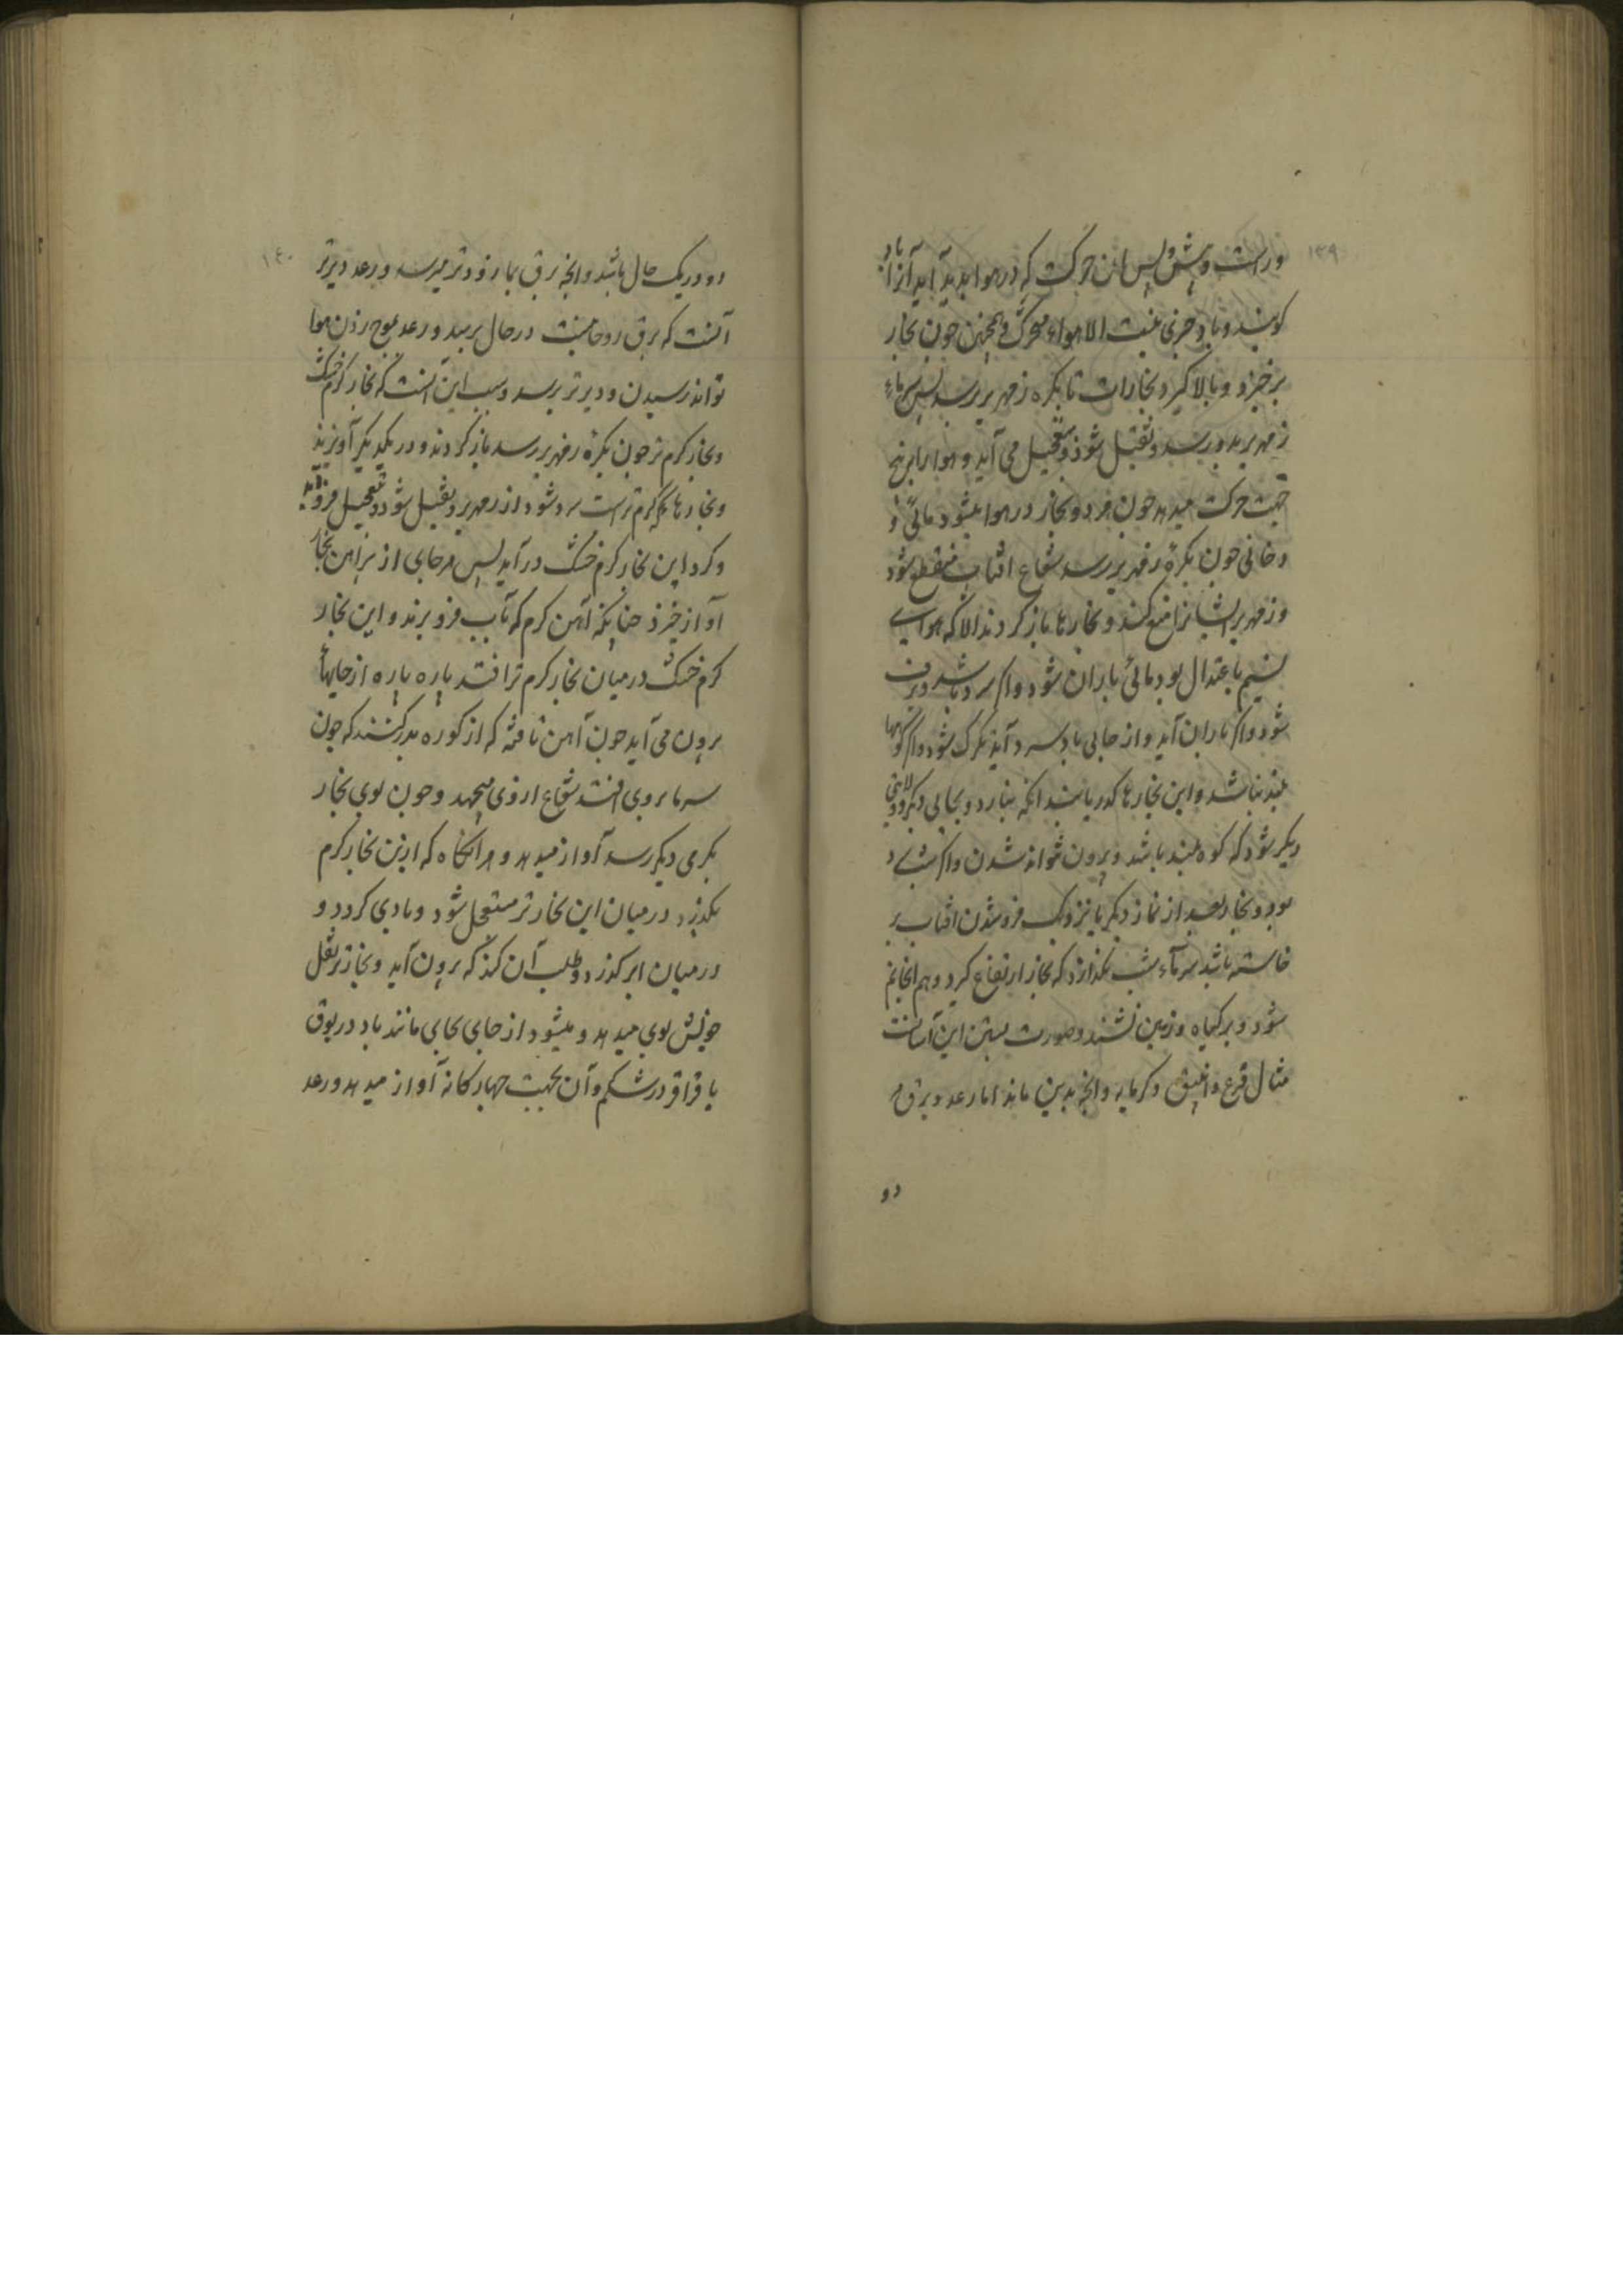 ١٣٩
و راست و پیش و پس از آن حرکت که در هوا پدید آید آنرا باد
کویند و باد چیزی نیست الا هواء متحرک و همچنین چون بخار
برخیزد و بالا کیرد بخارات تا بکره زمهریر برسد پس سرماء
زمهریر بدو رسد و ثقیل شود و بتعجیل می آید و هوا را بر پنج
جهت حرکت میدهد چون هر دو بخار در هوا میشود مائی و
دخانی چون بکرۀ زمهریر رسد شعاع افتاب منقطع شود
و زمهریر ایشانرا منع کند و بخارها باز کردند الا که هوای
نسیم باعتدال بود مائی باران شود و اکر سرد باشد برف
شود و اکر باران آید و از جایی باد سرد آید تکرک شود و اکر کوهها
بلند نباشد و این بخارها کدر باشد انکه بنبارد و بجایی دیکر رود ولایتی
دیکر شود که کوه بلند باشد و بیرون نتواند شدن و اکر شب
بود و بخار بعد از نماز دیکر یا نزدیک فروشدن افتاب بر
خاسته باشد سرماء شب نکذارد که بخار ارتفاع کیرد و هم انجا نم
شود و بر کیاه و زمین نشیند و صورت بستن این آسانست
مثال قرع و انبیق و کرمابه و انچه بدین ماند اما رعد و برق هر
دو
١٤٠
دو در یک حال باشد و انچه برق بما زودتر میرسد و رعد دیرتر
آنست که برق روحانیست در حال برسد و رعد بموج زدن هوا
تواند رسیدن و دیرتر برسد و سبب این آنست که بخار کرم خشک
و بخار کرم تر چون بکرۀ زمهریر رسد باز کردند و در یکدیکر آویزند
و بخارها که کرم ترست سرد شود از زمهریر و ثقیل شود و بتعجیل فرو آید
و کرد این بخار کرم خشک در آید پس هر جای از پیراهن بخار
آواز خیزد چنانکه آهن کرم که بآب فرو برند و این بخار
کرم خشک در میان بخار کرم تر افتد پاره پاره از جایها
برون می آید چون آهن تافته که از کوره بدر کشند که چون
سرما بروی افتد شعاع از وی میجهد و چون بوی بخار
بکرمی دیکر رسد آواز میدهد و هر انکاه که ازین بخار کرم
بکذرد در میان این بخار تر مستعجل شود و بادی کردد و
در میان ابر کذرد و طلب آن کند که برون آید و بخار تر بثقل
خویش بوی میدهد و میشود از جایی بجایی مانند باد در بوق
یا قراقر در شکم و آن بجهت چهارکانه آواز میدهد و رعد